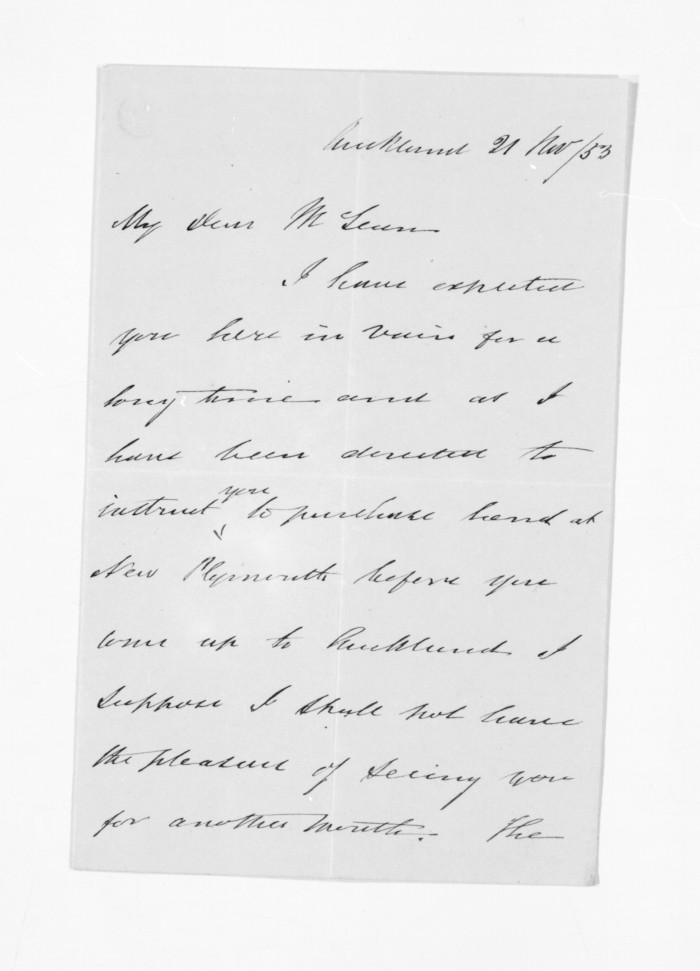 Auckland 21 Nov/53
My Dear McLean
I have expected
you here in vain for a
long time and as I
have been directed to
instruct you to purchase land at
New Plymouth before you
come up to Auckland I
suppose I shall not have
the pleasure of seeing you
for another month. The